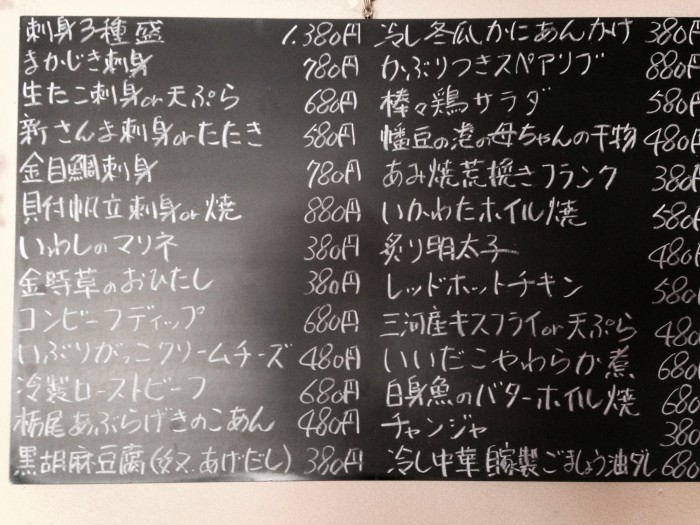 刺身3種盛 1.380円
まかじき刺身 780円
生たこ刺身or天ぷら 680円
新さんま刺身orたたき 580円
金目鯛刺身 780円
貝付帆立刺身or焼 880円
いわしのマリネ 380円
金時草のおひたし 380円
コンビーフディップ 680円
いぶりがっこクリームチーズ 480円
冷製ローストビーフ 680円
栃尾あぶらげきのこあん 480円
黒胡麻豆腐(又 あげだし) 380円
冷し冬瓜かにあんかけ 380円
かぶりつきスペアリブ 880円
棒々鶏サラダ 580
幡豆の港の母ちゃんの干物 480円
あみ焼荒挽きフランク 380
いかわたホイル焼 580
炙り明太子 480
レッドホットチキン 580
三河産キスフライor天ぷら 480
いいだこやわらか煮 680
白身魚のバターホイル焼 680
チャンジャ 380
冷し中華 自家製ごましょう油ダレ 680